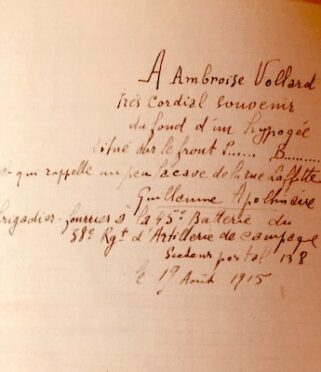 A Ambroise Vollard
très cordial souvenir
du fond d'un hypogée
situé sur le front P..... B.........
ce qui rappelle un peu la cave de la rue Laffitte
Guillaume Apollinaire
brigadier-fourrier à la 45e Batterie du
38e Rgt d'Artillerie de campagne
Secteur postal 138
le 19 Août 1915